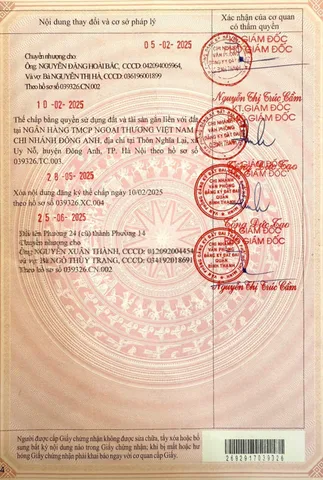 Nội dung thay đổi và cơ sở pháp lý
Xác nhận của cơ quan
có thẩm quyền
05 -02- 2025
Chuyển nhượng cho
Ông: NGUYỄN ĐĂNG HOÀI BẮC, CCCD: 042094005964,
Và vợ: Bà NGUYỄN THỊ HÀ, CCCD: 036196001899
Theo hồ sơ số 039326.CN.002
GIÁM ĐỐC
CHI NHÁNH
VĂN PHÒNG
Nguyễn Thị Trúc Cẩm
10 -02- 2025
Thế chấp bằng quyền sử dụng đất và tài sản gắn liền với đất
tại NGÂN HÀNG TMCP NGOẠI THƯƠNG VIỆT NAM -
CHI NHÁNH ĐÔNG ANH, địa chỉ tại Thôn Nghĩa Lại, xã
Uy Nỗ, huyện Đông Anh, TP. Hà Nội theo hồ sơ số
039326.TC.003.
GIÁM ĐỐC
CHI NHÁNH
VĂN PHÒNG
ĐĂNG KÝ ĐẤT ĐAI
26 -05- 2025
Xóa nội dung đăng ký thế chấp ngày 10/02/2025
theo hồ sơ số 039326.XC.004
GIÁM ĐỐC
CHI NHÁNH
VĂN PHÒNG
ĐĂNG KÝ ĐẤT ĐAI
QUẬN
BÌNH THẠNH
25 -06- 2025
Đổi tên Phường 24 (cũ) thành Phường 14
Chuyển nhượng cho
Ông: NGUYỄN XUÂN THÀNH, CCCD: 012092004454
và vợ: Bà NGÔ THÙY TRANG, CCCD: 034192018691
Theo hồ sơ số 039326.CN.002
PHÓ GIÁM ĐỐC
CHI NHÁNH
VĂN PHÒNG
ĐĂNG KÝ ĐẤT ĐAI
QUẬN
BÌNH THẠNH
Nguyễn Thị Trúc Cẩm
Người được cấp Giấy chứng nhận không được sửa chữa, tẩy xóa hoặc bổ
sung bất kỳ nội dung nào trong Giấy chứng nhận; khi bị mất hoặc hư
hỏng Giấy chứng nhận phải khai báo ngay với cơ quan cấp Giấy.
2682917039326